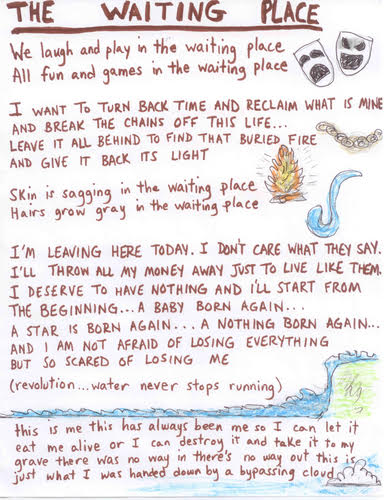 THE WAITING PLACE
We laugh and play in the waiting place
All fun and games in the waiting place
I WANT TO TURN BACK TIME AND RECLAIM WHAT IS MINE
AND BREAK THE CHAINS OFF THIS LIFE...
LEAVE IT ALL BEHIND TO FIND THAT BURIED FIRE
AND GIVE IT BACK ITS LIGHT
Skin is sagging in the waiting place
Hairs grow gray in the waiting place
I'M LEAVING HERE TODAY. I DON'T CARE WHAT THEY SAY.
I'LL THROW ALL MY MONEY AWAY JUST TO LIVE LIKE THEM.
I DESERVE TO HAVE NOTHING AND I'LL START FROM
THE BEGINNING... A BABY BORN AGAIN...
A STAR IS BORN AGAIN... A NOTHING BORN AGAIN...
AND I AM NOT AFRAID OF LOSING EVERYTHING
BUT SO SCARED OF LOSING ME
(revolution...water never stops running)
this is me this has always been me so I can let it
eat me alive or I can destroy it and take it to my
grave there was no way in there's no way out this is
just what I was handed down by a bypassing cloud